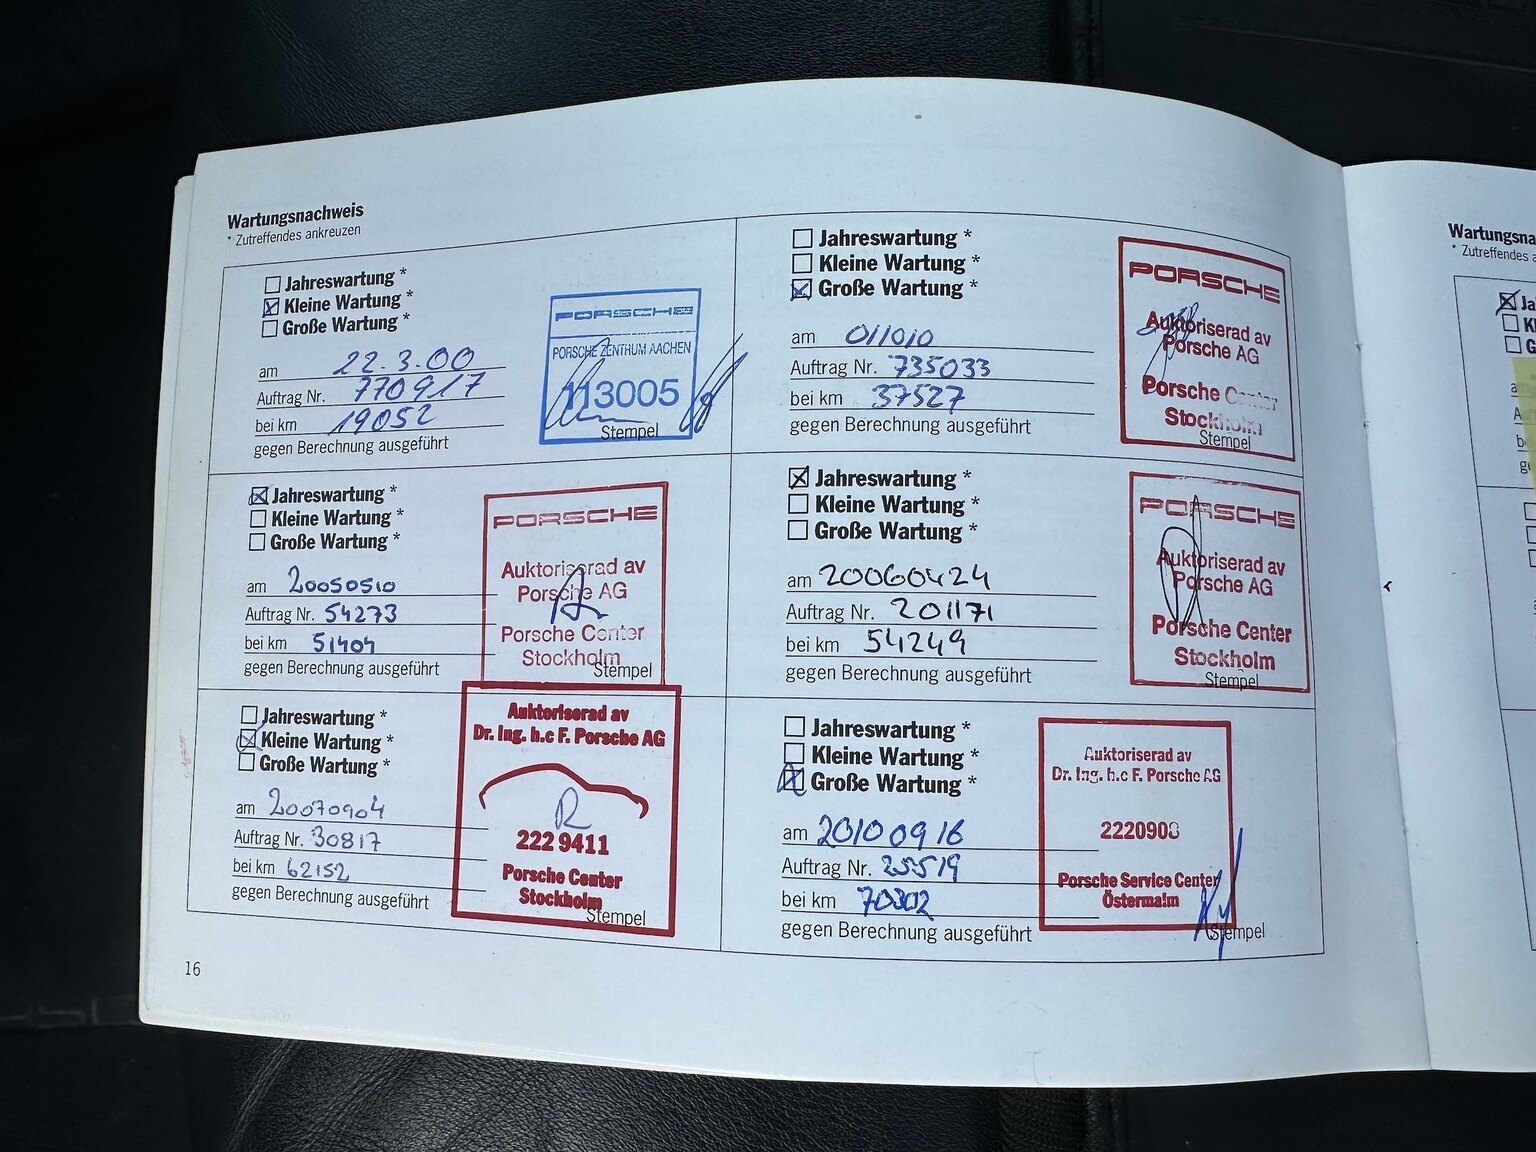 Wartungsnachweis
* Zutreffendes ankreuzen
Jahreswartung *
Kleine Wartung *
Große Wartung *
am 22.3.00
Auftrag Nr. 770917
bei km 19052
gegen Berechnung ausgeführt
PORSCHE
PORSCHE ZENTRUM AACHEN
113005
Stempel
Jahreswartung *
Kleine Wartung *
Große Wartung *
am 011010
Auftrag Nr. 735033
bei km 37527
gegen Berechnung ausgeführt
PORSCHE
Auktoriserad av
Porsche AG
Porsche Center
Stockholm
Stempel
Jahreswartung *
Kleine Wartung *
Große Wartung *
am 20050510
Auftrag Nr. 54273
bei km 51404
gegen Berechnung ausgeführt
PORSCHE
Auktoriserad av
Porsche AG
Porsche Center
Stockholm
Stempel
Jahreswartung *
Kleine Wartung *
Große Wartung *
am 20060424
Auftrag Nr. 201171
bei km 54249
gegen Berechnung ausgeführt
PORSCHE
Auktoriserad av
Porsche AG
Porsche Center
Stockholm
Stempel
Jahreswartung *
Kleine Wartung *
Große Wartung *
am 20070904
Auftrag Nr. 30817
bei km 62152
gegen Berechnung ausgeführt
Auktoriserad av
Dr. Ing. h.c F. Porsche AG
222 9411
Porsche Center
Stockholm
Stempel
Jahreswartung *
Kleine Wartung *
Große Wartung *
am 20100916
Auftrag Nr. 25519
bei km 70302
gegen Berechnung ausgeführt
Auktoriserad av
Dr. Ing. h.c F. Porsche AG
2220900
Porsche Service Center
Östermalm
Stempel
16
* Zutreffendes